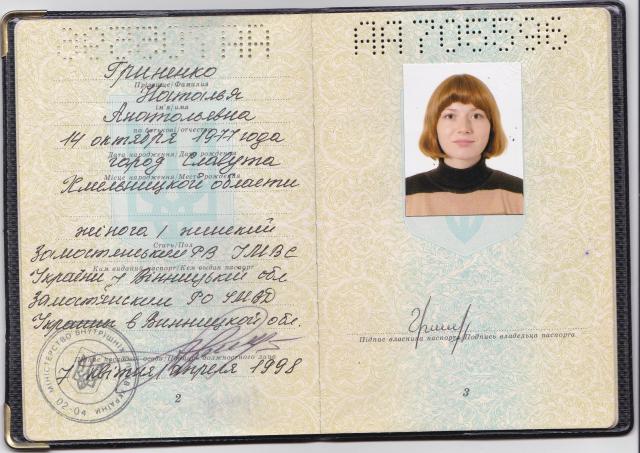 Гриненко
Прізвище/Фамилия
Наталья
ім'я/имя
Анатольевна
по батькові/отчество
14 октября 1977 года
Дата народження/Дата рождения
город Славута
Місце народження/Место рождения
Хмельницкой области
жіноча / женский
Стать/Пол
Замостянським РВ УМВС
Ким виданий паспорт/Кем выдан паспорт
України у Вінницькій обл
Замостянским РО УМВД
Украины в Винницкой обл.
7 квітня / апреля 1998
МІНІСТЕРСТВО ВНУТРІШНІХ СПРАВ УКРАЇНИ
02-04
2
АА705596
Підпис власника паспорта/Подпись владельца паспорта
3